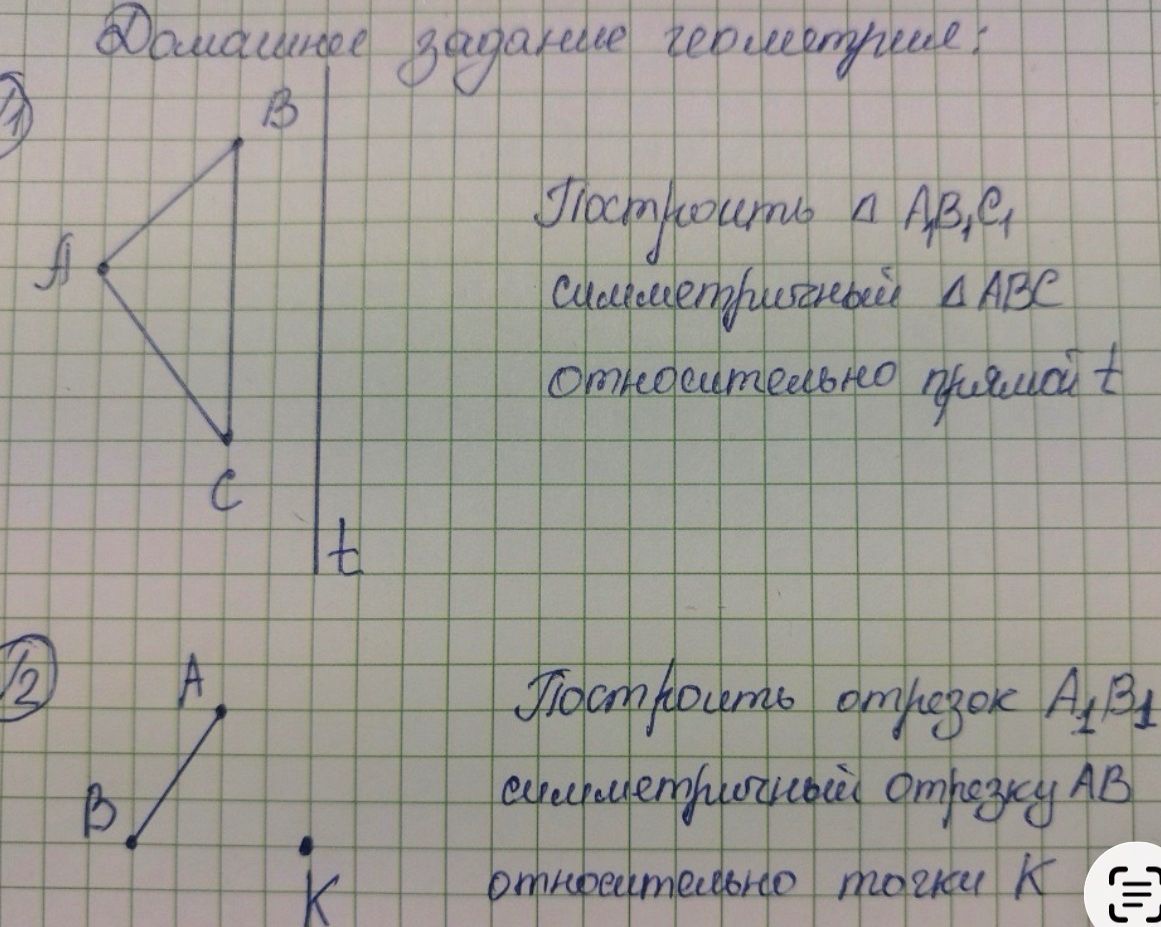 Домашнее задание геометрие:
1
B
Построить Δ A₁B₁C₁
A
симметричный Δ ABC
относительно прямой t
C
t
2
A
Построить отрезок A₁B₁
симметричный отрезку AB
B
относительно точки K
K